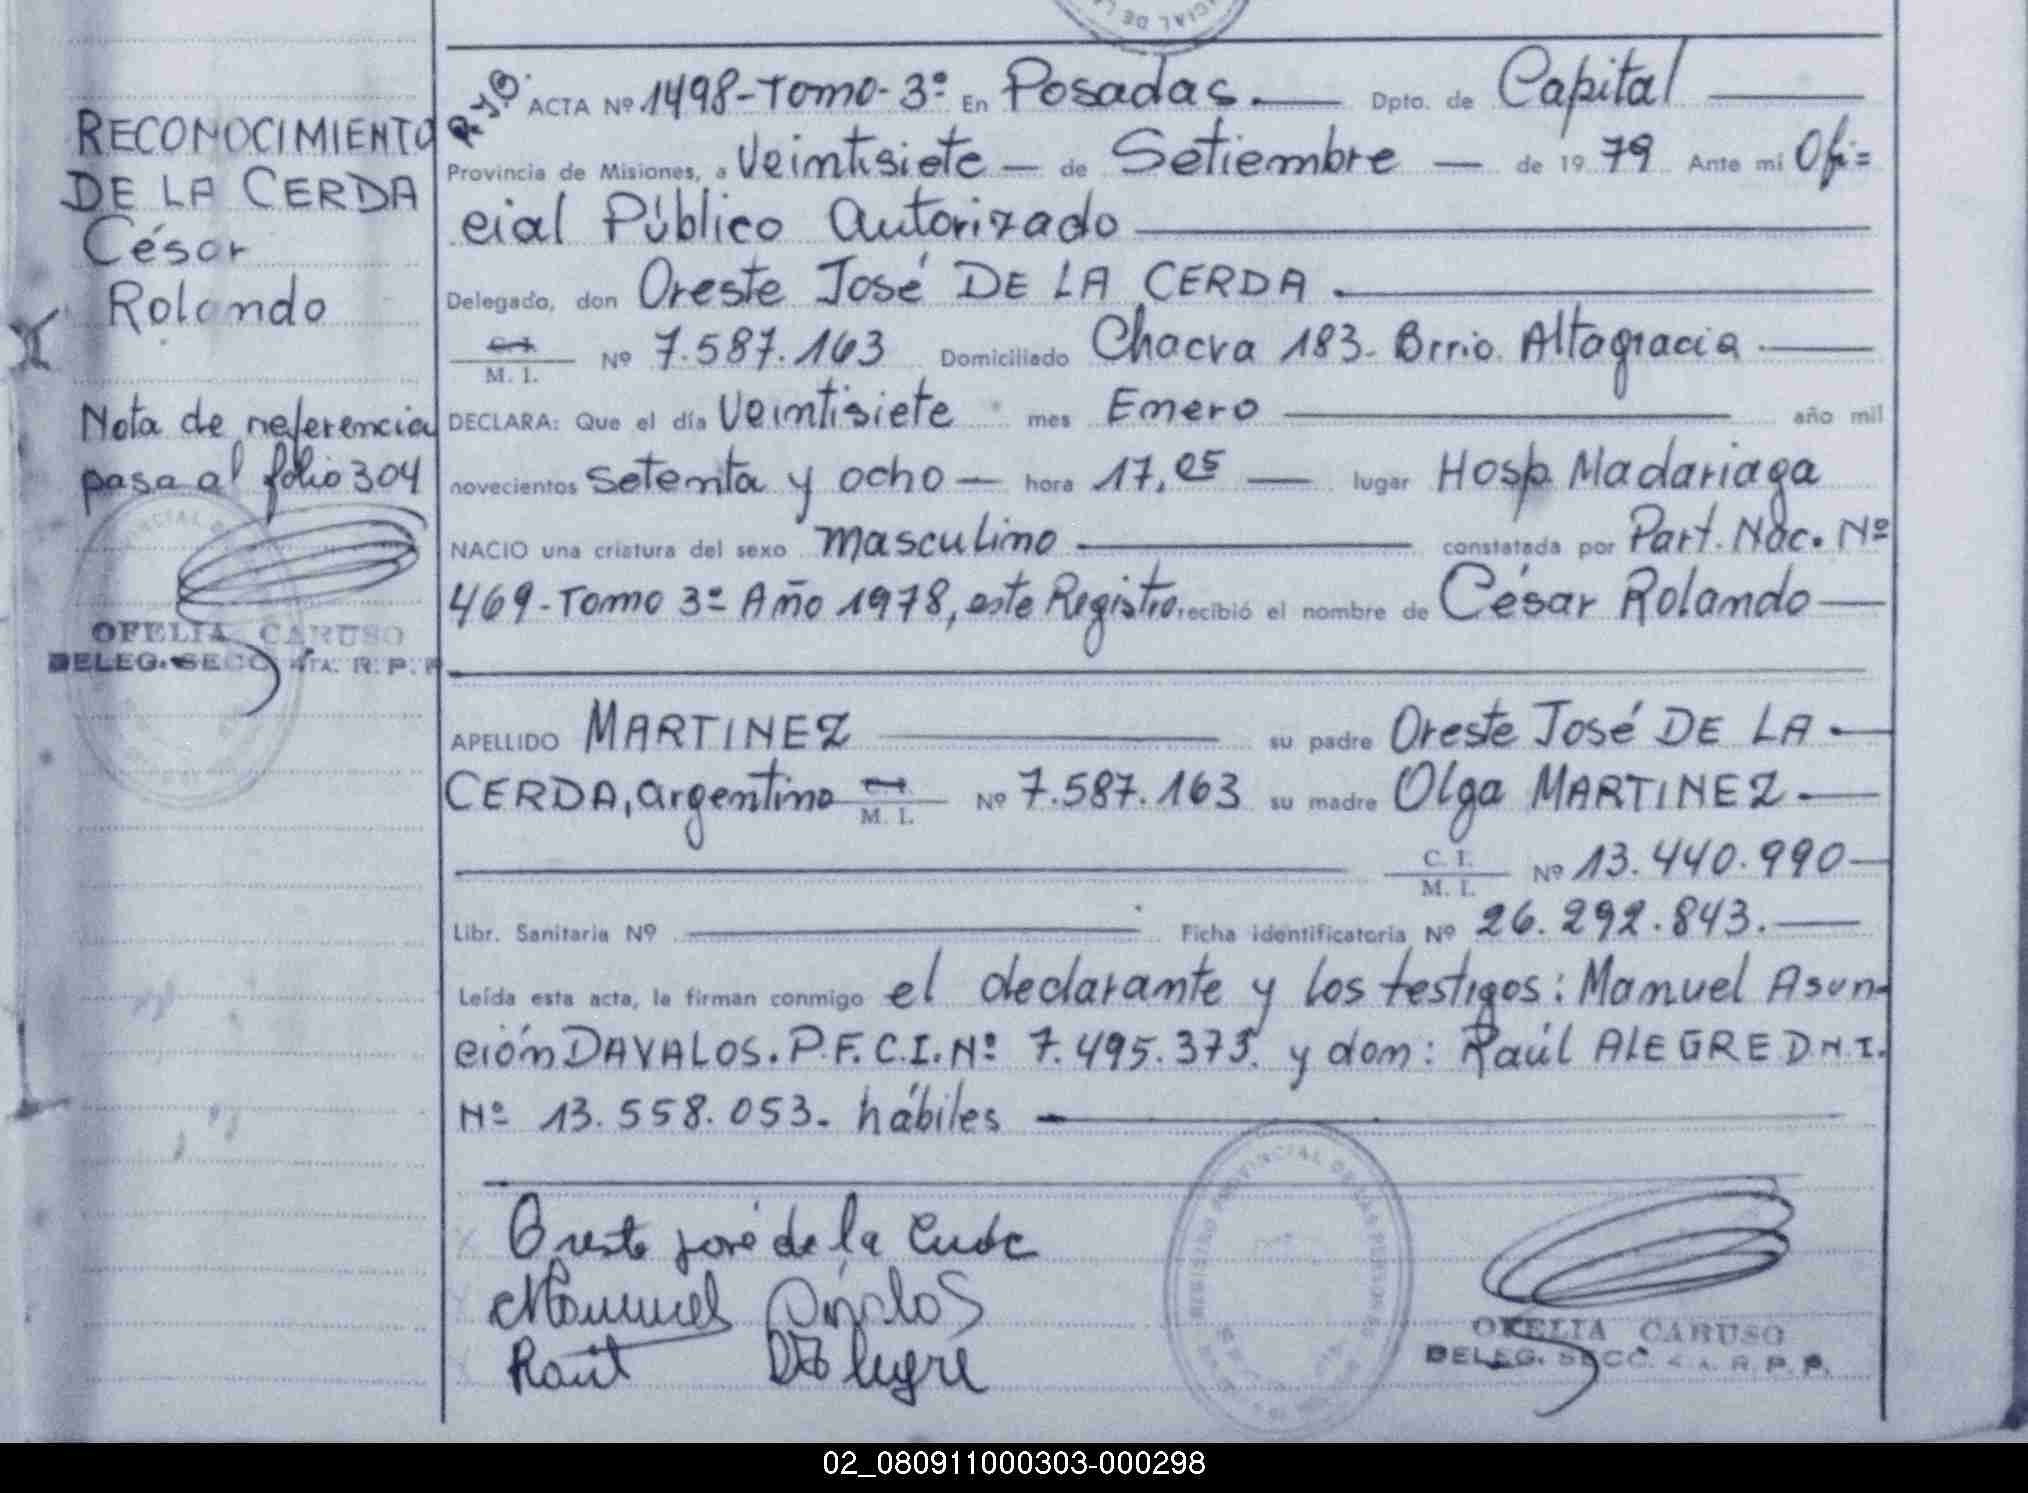 RECONOCIMIENTO
DE LA CERDA
César
Rolando
Nota de referencia
pasa al folio 304
OFELIA CARUSO
DELEG. SECC. 4TA. R. P. P.
ACTA Nº 1498-Tomo-3º En Posadas. Dpto. de Capital
Provincia de Misiones, a Veintisiete — de Setiembre — de 1979 Ante mi Ofi=
cial Público Autorizado
Delegado, don Oreste José DE LA CERDA.
M. I. Nº 7.587.163 Domiciliado Chacra 183- Brrio. Altagracia
DECLARA: Que el día Veintisiete mes Enero año mil
novecientos setenta y ocho — hora 17,05 — lugar Hosp. Madariaga
NACIO una criatura del sexo masculino constatada por Part. Nac. Nº
469-Tomo 3º Año 1978, este Registro recibió el nombre de César Rolando
APELLIDO MARTINEZ su padre Oreste José DE LA
CERDA, argentino M. I. Nº 7.587.163 su madre Olga MARTINEZ
C. I. M. I. Nº 13.440.990
Libr. Sanitaria Nº Ficha identificatoria Nº 26.292.843.
Leída esta acta, la firman conmigo el declarante y los testigos: Manuel Asun-
ción DAVALOS. P.F.C.I. Nº 7.495.373. y don: Raúl ALEGRE D.N.I.
Nº 13.558.053. hábiles
Oreste José de la Cerda
Manuel Davalos
Raúl Alegre
OFELIA CARUSO
DELEG. SECC. 4TA. R. P. P.
02_080911000303-000298